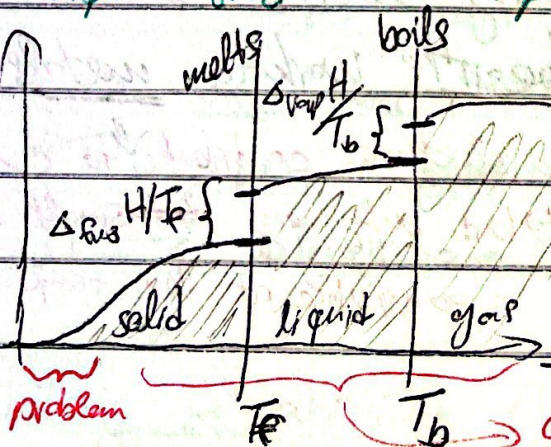 melts
boils
Δvap H/Tb
Δfus H/Tf
solid
liquid
gas
problem
Tf
Tb